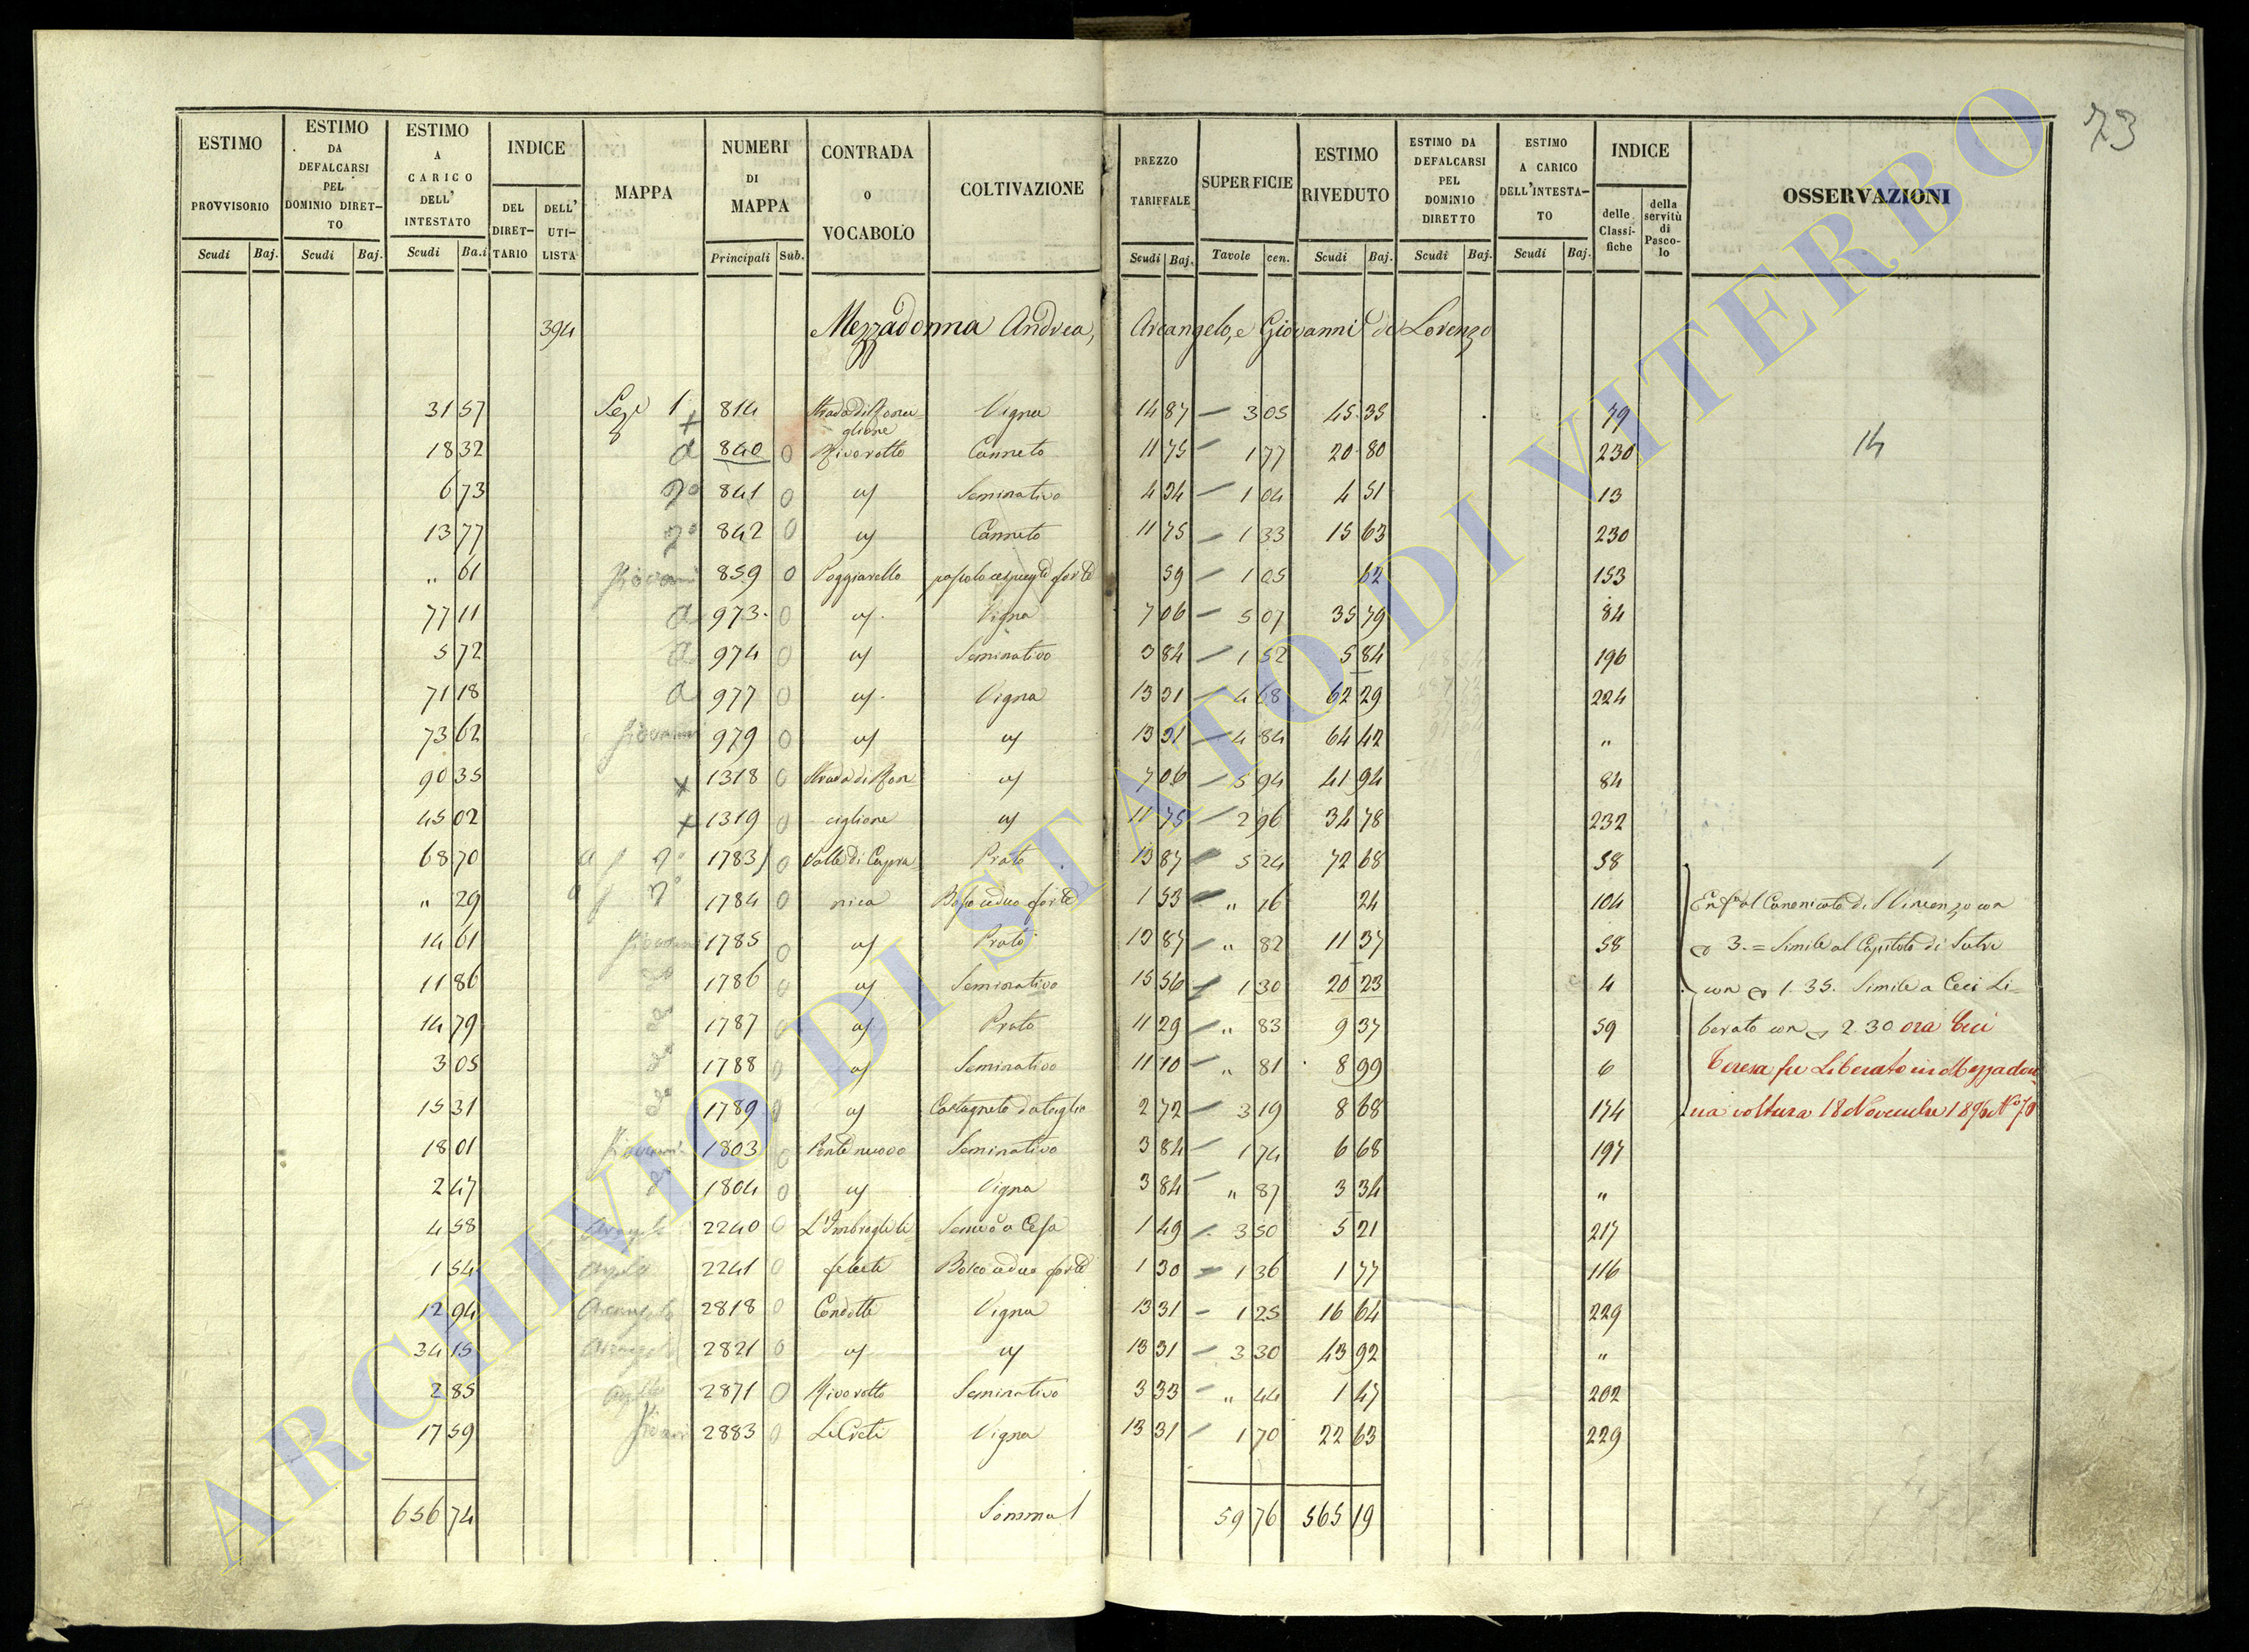 73
ESTIMO PROVVISORIO Scudi Baj.
ESTIMO DA DEFALCARSI PEL DOMINIO DIRETTO Scudi Baj.
ESTIMO A CARICO DELL' INTESTATO Scudi Ba.i
INDICE DEL DIRETTARIO DELL' UTILISTA
MAPPA
NUMERI DI MAPPA Principali Sub.
CONTRADA o VOCABOLO
COLTIVAZIONE
PREZZO TARIFFALE Scudi Baj.
SUPERFICIE Tavole cen.
ESTIMO RIVEDUTO Scudi Baj.
ESTIMO DA DEFALCARSI PEL DOMINIO DIRETTO Scudi Baj.
ESTIMO A CARICO DELL'INTESTATO Scudi Baj.
INDICE delle Classifiche della servitù di Pascolo
OSSERVAZIONI
394 Mezzadonna Andrea, Arcangelo, e Giovanni di Lorenzo
31 57 Sez.e 1 814 Strada di Ronciglione Vigna 14 87 3 05 45 35 79
18 32 840 0 Rivorotto Canneto 11 75 1 77 20 80 230 14
6 73 841 0 Seminativo 4 34 1 04 4 51 13
13 77 842 0 Canneto 11 75 1 33 15 63 230
" 61 Giovanni 859 0 Poggiarello pascolo cespugto forte 59 1 05 62 153
77 11 973 0 Vigna 7 06 5 07 35 79 84
5 72 974 0 Seminativo 3 84 1 52 5 84 196
71 18 977 0 Vigna 13 31 4 68 62 29 224
73 62 Giovanni 979 0 13 31 4 84 64 42 "
90 35 x 1318 0 Strada di Ron 7 06 5 94 41 94 84
45 02 x 1319 0 ciglione 11 75 2 96 34 78 232
68 70 1783 0 Valle di Capra Prato 13 87 5 24 72 68 58
" 29 1784 0 nica Bosco ceduo forte 1 53 " 16 24 104 Enf.a al Canonicato di S Vincenzo con
14 61 Giovanni 1785 0 Prato 13 87 " 82 11 37 58 3.= Simile al Capitolo di Sutri
11 86 1786 0 Seminativo 15 56 1 30 20 23 4 con 1.35. Simile a Ceci Li-
14 79 1787 0 Prato 11 29 " 83 9 37 59 berato con 2.30 ora Ceci
3 05 1788 0 Seminativo 11 10 " 81 8 99 6 Teresa fu Liberato in Mezzadon-
15 31 1789 0 Castagneto da taglio 2 72 3 19 8 68 174 na voltura 18 Novembre 1896 No 70
18 01 Giovanni 1803 0 Ponte nuovo Seminativo 3 84 1 74 6 68 197
2 47 1804 0 Vigna 3 84 " 87 3 34 "
4 58 2240 0 1 49 3 50 5 21 217
1 54 2241 0 Bosco ceduo forte 1 30 1 36 1 77 116
12 94 Arcangelo 2818 0 Condotti Vigna 13 31 1 25 16 64 229
34 15 Arcangelo 2821 0 13 31 3 30 43 92 "
2 85 2871 0 Rivorotto Seminativo 3 33 " 44 1 47 202
17 59 2883 0 Le Crete Vigna 13 31 1 70 22 63 229
656 74 Somma 59 76 565 19
ARCHIVIO DI STATO DI VITERBO